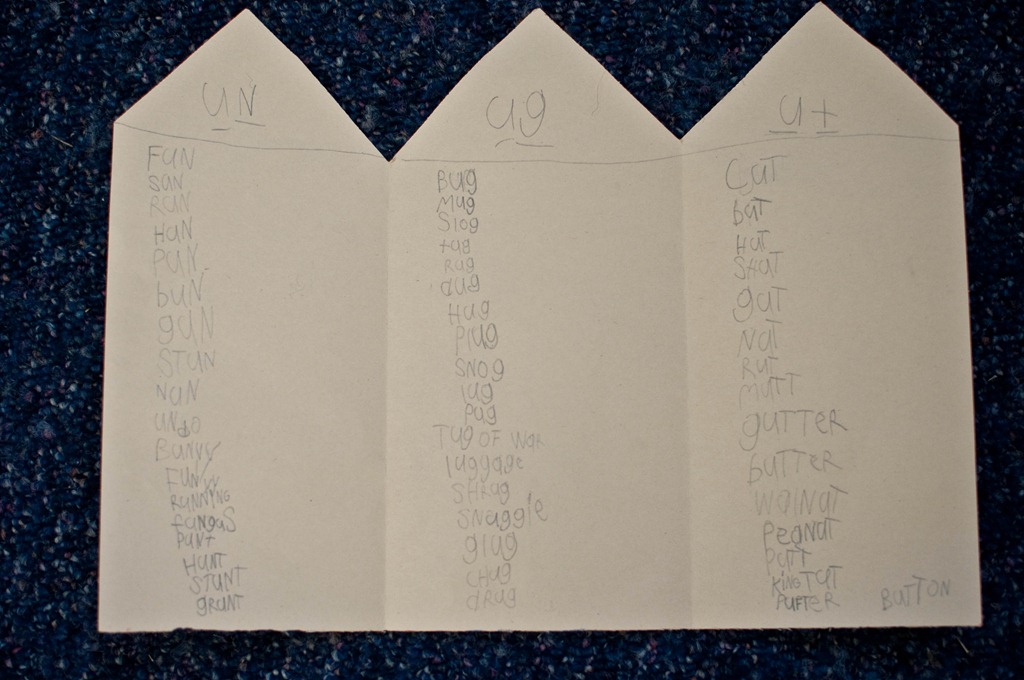 UN
FUN
SUN
RUN
HUN
PUN
bUN
gUN
STUN
NUN
UNdO
BUNNY
FUNNY
RUNNING
fUNgUS
PUNt
HUNT
STUNT
gRUNT
ug
Bug
Mug
Slug
tug
Rug
dug
Hug
Plug
SNUg
lug
pug
Tug OF WaR
luggage
SHRug
SNuggle
glug
CHug
dRug
ut
CUT
bUT
HUT
SHUT
gUT
NUT
RUT
MUTT
gUTTER
bUTTER
WalNUT
PeaNUT
PUTT
KINg TUT
PUTTER
BUTTON